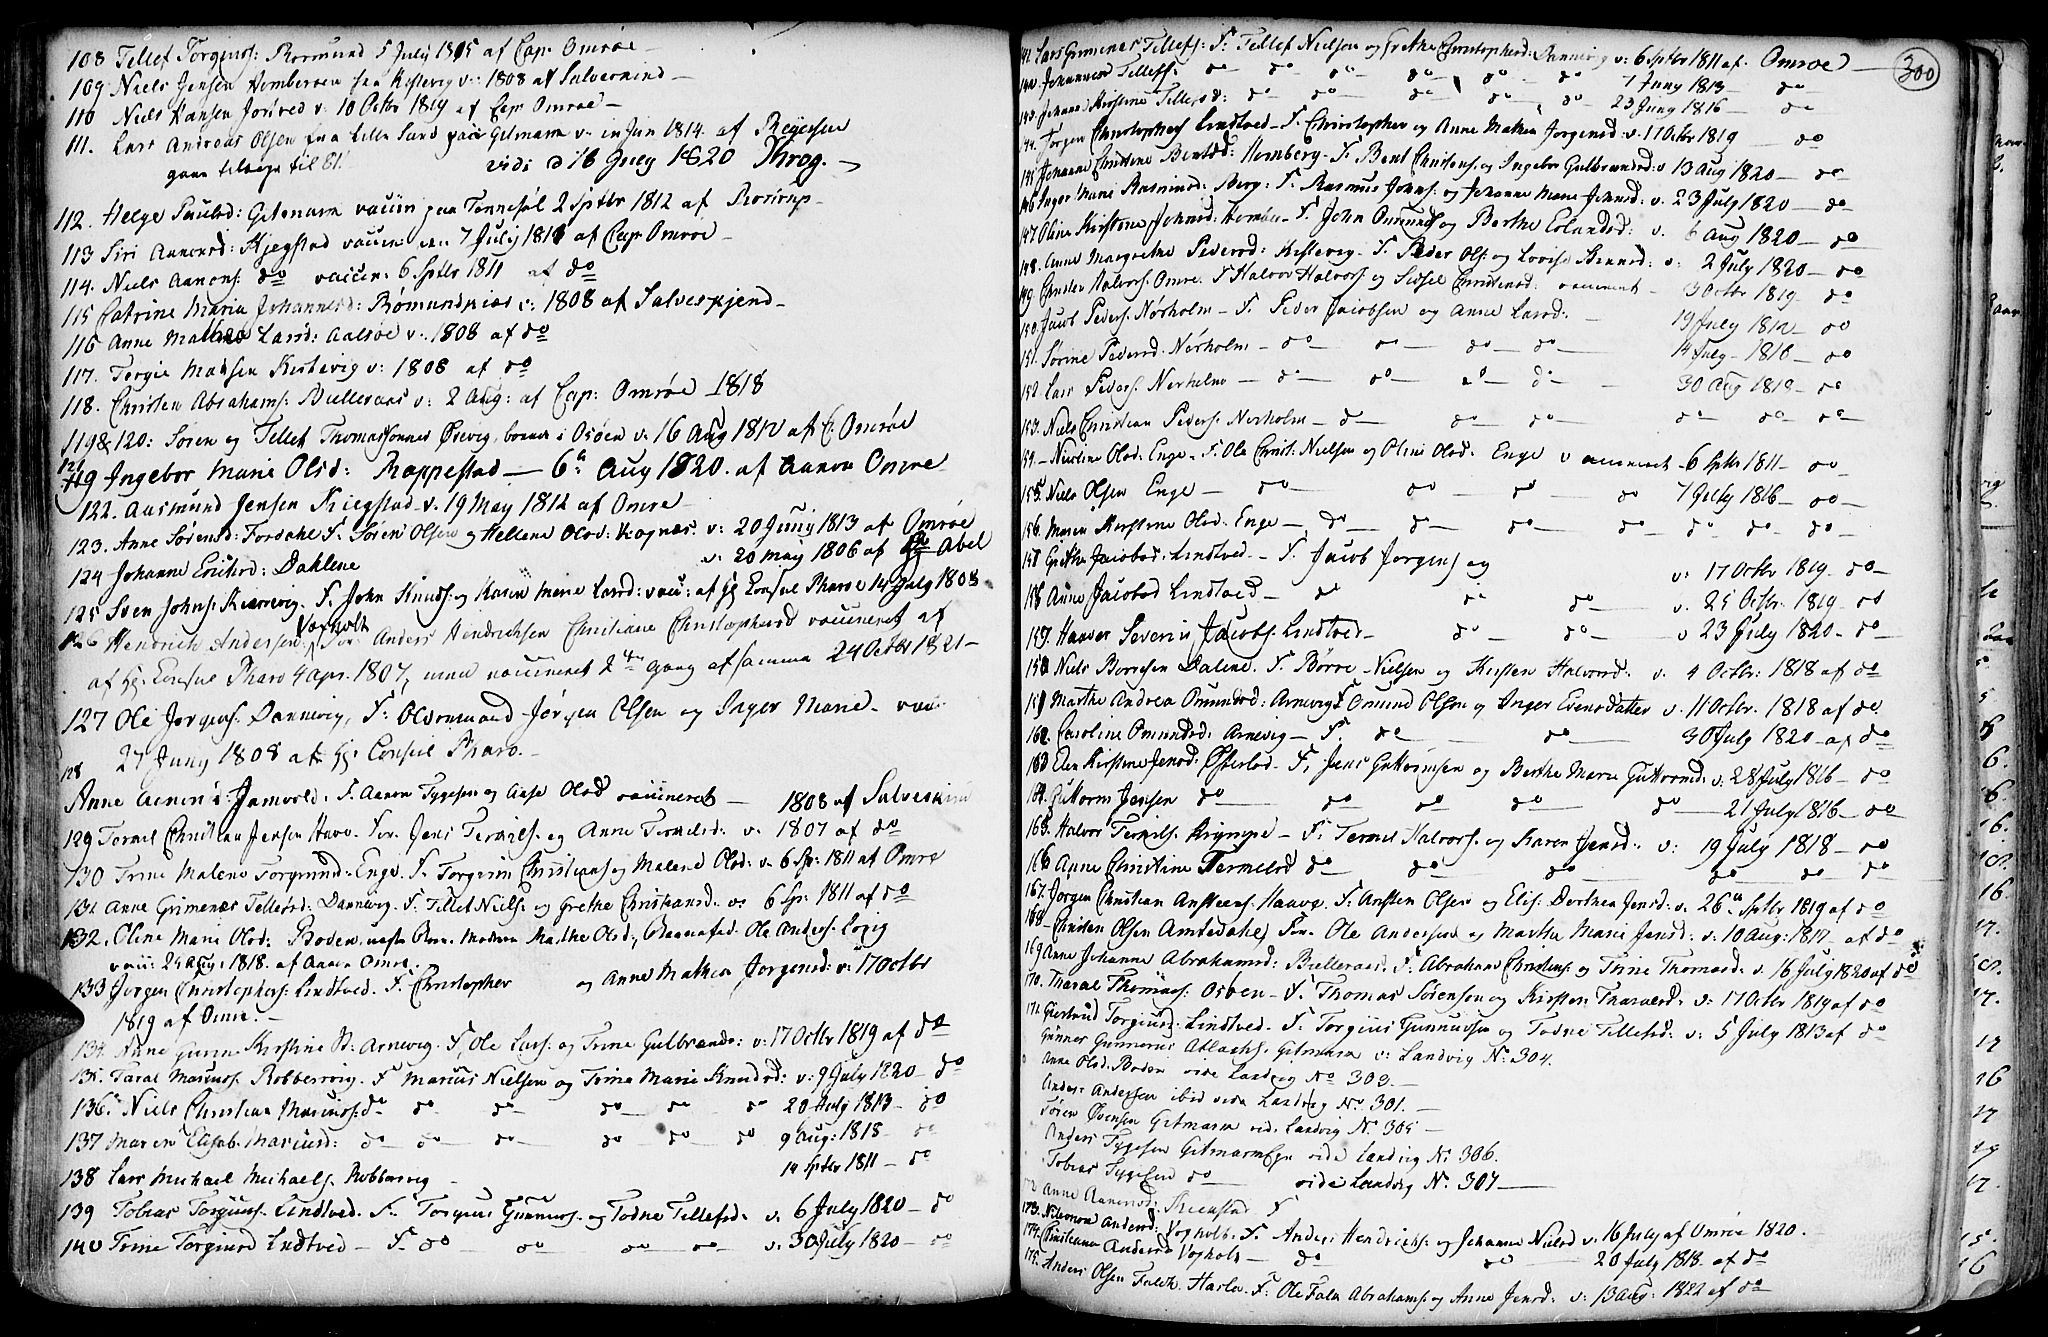 108 Tellef Torgiuss: Rosmund 5 July 1815 af Cap: Omrøe —
109 Niels Jensen Homborsen fra Kislevig v: 1808 af Salveskind —
110 Niels Hansen Jorsved v. 10 Octbr 1819 af Cap: Omrøe —
111. Lars Andreas Olsen fra Lille Sand paa Gitmarn v. in Jun 1814. af Regersen
gaar tilbage til 81. vidi d 16 July 1820 Throg. —
112. Helge Poulsd: Gitmarn vaccin paa Tonnesøl 2 Sptbr 1812 af Rosirup —
113 Siri Aanonsd: Kjegstad vaccin: den 7 July 1811 af Cap: Omrøe —
114. Niels Aanons: do vaccin: 6 Sptbr 1811 af do
115 Catrine Maria Johannesd: Rømundskias v: 1808 af Salveskjend —
116 Anne Mathea Larsd: Aalsøe v: 1808 af do
117. Torgie Madsen Kislevig v: 1808 af do
118. Christen Abrahams: Bielleraas v: 2 Aug: af Cap: Omrøe 1818
119 & 120: Søren og Tellef Thomassønner Øsevig, boende i Osøen v. 16 Aug 1812 af C: Omrøe
121 Ingebor Marie Olsd: Rappestad — 6te Aug 1820. af Aanon Omre
122. Aasmund Jensen Kiegstad v. 19 May 1812 af Omre
123. Anne Sørensd: Fordahl F. Søren Olsen og Hellene Olsd: Kognæs v: 20 Juny 1813 af Omrøe
124 Johanne Erichsd: Dahlene v. 20 may 1806 af Hr Abel
125 Sven Johns: Kierrevig. F. John Knuds: og Karen Marie Larsd: vacc: af Hr Consul Pharo 14 July 1808
126 Hendrich Andersen Vogholt For: Anders Hendrichsen Christiane Christophersd vaccineret af
af Hr: Consul Pharo 4 apr: 1807, men vaccineret 2den gang af samme 24 Octbr 1821 —
127 Ole Jorgens: Dannevig, F: Jørgen Olsen og Inger Marie — vac:
27 Juny 1808 af Hr: Consul Pharo. —
128
Anne Aanons: Jamvold. F. Aanon Tygesen og Aase Olsd vaccineret — 1808 af Salveskind
129 Tormel Christian Jensen Have. For. Jens Termels. og Anne Termelsd: v. 1807 af do
130 Trine Malene Torgrimsd: Enge. F. Torgrim Christians og Malene Olsd: v. 6 Sp: 1811 af Omre
131 Anne Grimenæs Tellefsd: Dannevig. F. Tellef Niels. og Grethe Christiansd: v: 6 Spr: 1811 af do
132. Oline Marie Olsd: Boden, Moderen Mathe Olsd., Barnefad. Ole Anders: Løgig
vacc: 24 Aug: 1818. af Aanon Omre.
133 Jørgen Christophers: Lindtved. F. Christopher og Anne Mathea Jorgensd: v: 17 Octbr
1819 af Omre. —
134. Anne Gurine Kirstine O: Arnevig. F. Ole Lars: og Trine Gulbrands: v: 17 Octbr 1819 af do
135. Taral Marius: Robbersvig. F Marius Nielsen og Trine Marie Knudsd: v: 9 July 1820 — do
136. Niels Christian Marius: do — do — do — do — do — do 20 July 1813 — do
137 Maren Elisab. Mariusd: do — do — do — do — do — do 9 aug: 1818 — do
138 Lars Michael Michaels. Robbersvig — 14 Sptbr 1811 — do
139 Tobias Torgiuss. Lindtved. F. Torgius Gunnuss. og Todne Tellefsd. v. 6 July 1820 — do
140 Trine Torgiusd Lindtved — F. do do do — do — v. 30 July 1820 — do
300
141. Lars Grimenæs Tellefs: F. Tellef Nielsen og Grethe Christophersd: Dannevig v: 6 Sptbr 1811 af Omrøe —
142. Johannes Tellefs: do — do — do — do — do — do 7 Juny 1813 — do
143. Johanne Kirstine Tellefsd: do — do — do — do — do 23 Juny 1816 — do
144. Jørgen Christophers Lindtved — F. Christopher og Anne Mathea Jorgensd: v: 17 Octbr 1819 — do
145 Johanne Christine Bentsd: Homberg — F. Bent Christens: og Ingebor Gulbransd: v 13 Aug 1820 — do
146 Inger Marie Rasmusd: Berg: F. Rasmus Johns: og Johanne Marie Johnsd: v. 23 July 1820 — do
147 Oline Kirstine Johnsd: — F. John Omunds og Berthe Erlandsd: v. 6 Aug 1820 — do
148. Anne Margrethe Pedersd: Kislevig. F. Peder Ols: og Lovise v: 2 July 1820 — do
149. Christen Halvors: Omre. F Halvor Halvors: og Sidsel Christensd: vaccineret — 3 Octbr 1819 do
150. Jacob Peders: Nørholm — F. Peder Jacobsen og Anne Larsd: — 19 July 1812 — do
151. Sorine Pedersd. Nørholm — do — do — do — do — 14 July — 1816 — do
152. Lars Peders: Nørholm — do — do — do — do — 30 Aug 1818 — do
153. Niels Christian Peders: Nørholm — do — do — do — do — do — do
154. — Nicoline Olsd: Enge — F. Ole Christ: Nielsen og Oline Olsd: Enge vaccineret — 6 Sptbr 1811 — do
155. Niels Olsen Enge — do — do — do — do 7 July 1816 — do —
156. Maren Kirstine Olsd: Enge — do — do — do — do — do — do — do —
157 Grethe Jacobsd: Lindtved — F. Jacob Jorgens og v: 17 Octbr 1819 — do —
158 Anne Jacobsd Lindtved — do do do — v. 25 Octbr: 1819 — do
159. Haaver Severin Jacobs: Lindtved — do — do — v 23 July 1820 — do —
150 Niels Borresen Dalene. F. Børre Nielsen og Kirsten Halvorsd: v. 4 Octbr: 1818 af do
151 Marthe Andrea Omundsd: Arnevig F. Omund Olsen og Inger Evensdatter v: 11 Octbr. 1818 af do
162. Caroline Omundsd: Arnevig — F. do — do — 30 July 1820 — af do
163 Elen Kirstine Jensd: Østerlod — F, Jens Guttormsen og Berthe Marie Guttormsd: v: 28 July 1816 — do
164. Guttorm Jensen do — do — do do — do — 21 July 1816 — do —
165. Halvor Termels. — F. Termel Halvors: og Karen Jensd: v: 19 July 1818 — do
166 Anne Christine Termelsd do — do — do — do do do
167. Jørgen Christian Anstens: Haave. F. Ansten Olsen og Elis: Dorthea Jensd: v. 26te Sptbr 1819 af do
168. Christen Olsen Amtedahl, For. Ole Andersen og Marthe Marie Jensd: v: 10 Aug: 1817 — af do
169 Anne Johanne Abrahamsd: Bielleraas. F. Abraham Christens: og Trine Thomasd: v. 16 July 1820 af do
170. Tharal Thomass: Osøen — F. Thomas Sørensen og Kirsten Tharalsd: v: 17 Octbr 1819 af do
171. Giertrud Torgiusd: Lindtved. F. Torgius Gunnusen og Todne Tellefsd: v: 5 July 1813 af do
Gunner Gunnerius Atlachs: Gitmarn v: Landvig No: 304.
Anne Olsd: Boden vide Landvig No 303. —
Anders Andersen ibid vide Landvig No. 301. —
Søren Øvensen Gitmarn vid: Landvig No: 305 —
Anders Tygesen Gitmarn vide Landvig No 306.
Tobias Tygesen do — vide Landvig No: 307 —
172 Anne Aanonsd: Kiegstad F
173. Andersd: Vogholt. F. Anders Hendrichs: og Johanne Nielsd v. 16 July af Omrøe 1820.
174. Christiane Andersd Vogholt — do — do — 20 July 1818. af do
175. Anders Olsen Falch. Hasla. F: Ole Falch Abrahams: og Anne Jensd: v: 13 Aug: 1822 af do